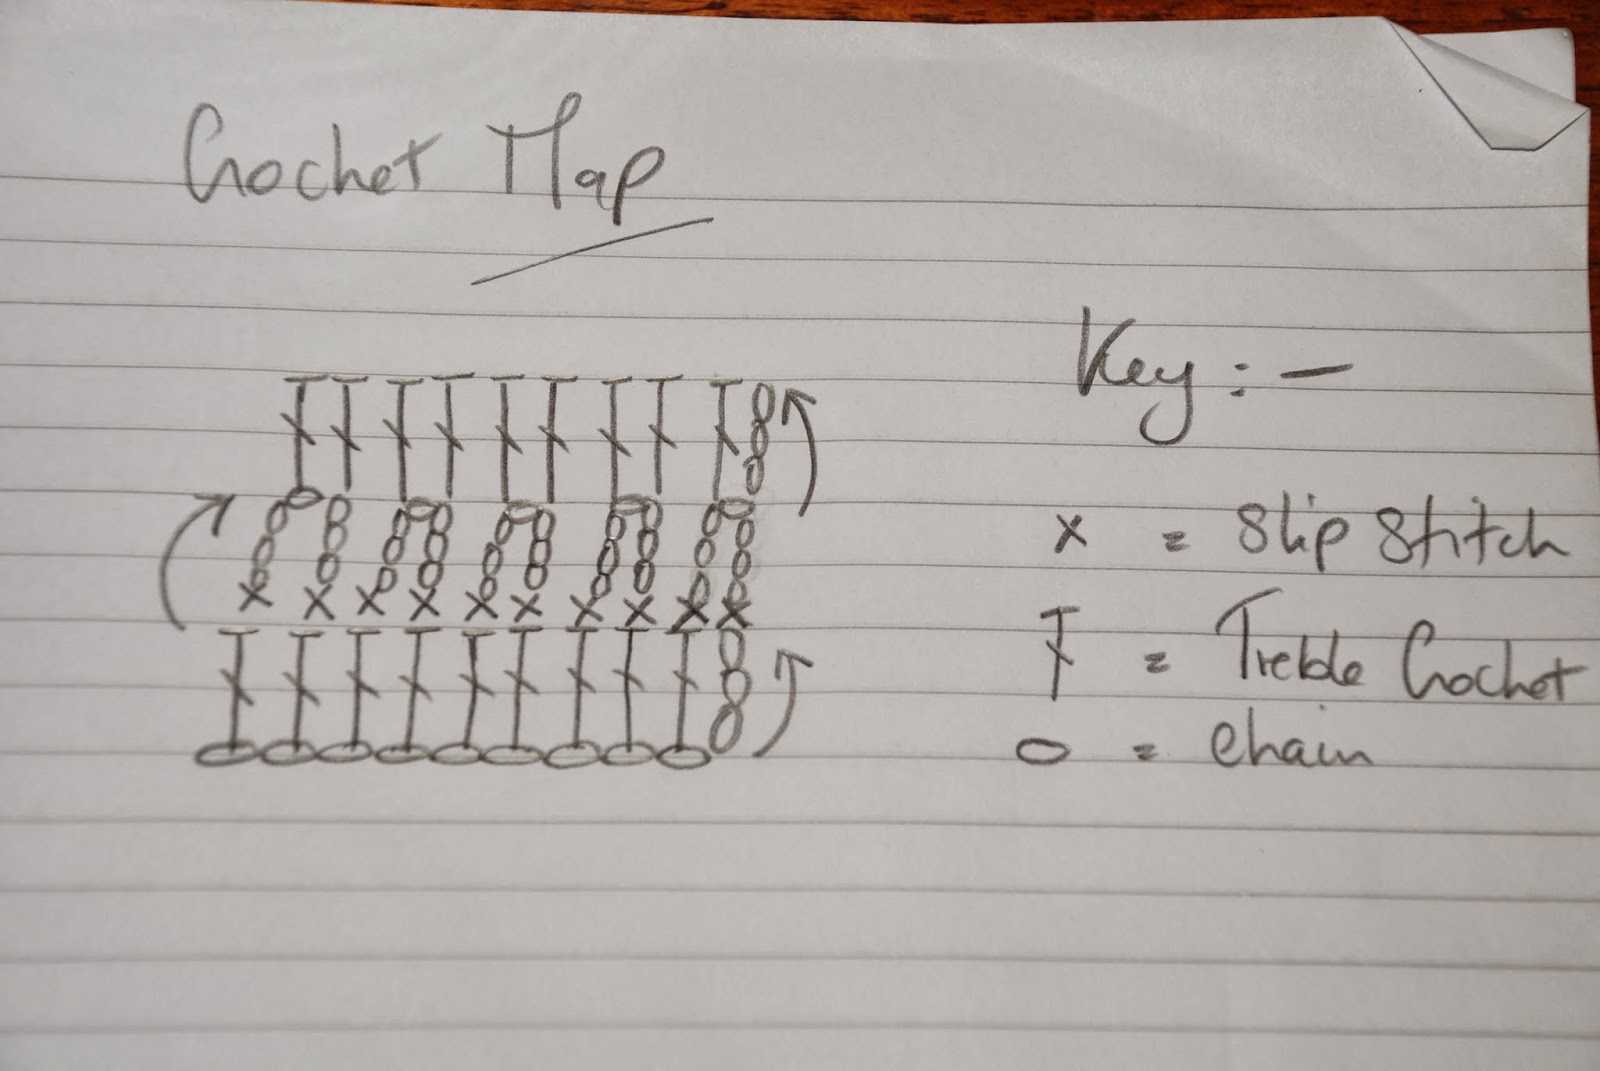 Crochet Map
Key :-
x = Slip Stitch
= Treble Crochet
o = Chain